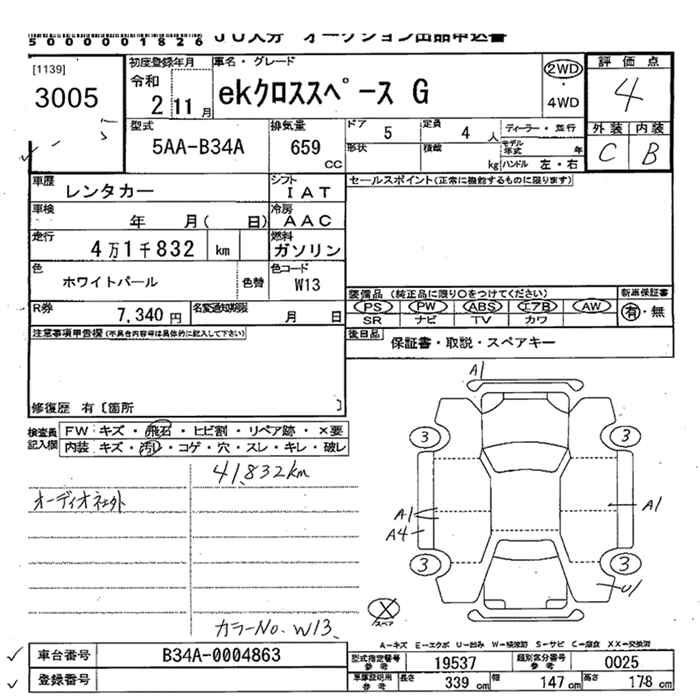 5000001826 JU大分 オークション出品申込書
[1139]
3005
初度登録年月
令和
2 11月
車名・グレード
ekクロススペース G
2WD
・
4WD
評価点
4
外装 内装
C B
型式
5AA-B34A
排気量
659
CC
ドア 5 定員 4 人
形状 積載 kg
ディーラー・並行
モデル年式 年
ハンドル 左・右
車歴
レンタカー
シフト
IAT
セールスポイント(正常に機能するものに限ります)
車検
年 月( 日)
冷房
AAC
走行
4万1千832 km
燃料
ガソリン
色
ホワイトパール
色替
色コード
W13
R券
7,340 円
名変通知期限
月 日
装備品 (純正品に限り○をつけてください)
PS PW ABS エアB AW
SR ナビ TV カワ
新車保証書
有・無
後日品
保証書・取説・スペアキー
注意事項申告欄(不具合内容等は具体的に記入して下さい)
修復歴 有〔箇所 〕
検査員
記入欄
FW:キズ・飛石・ヒビ割・リペア跡・×要
内装:キズ・汚れ・コゲ・穴・スレ・キレ・破レ
41,832km
オーディオネェ外
カラーNo. W13
A1
3
3
A1
A1
A4
3
3
U1
スペア
A-キズ E-エクボ U-凹み W-補修跡 S-サビ C-腐食 XX-交換済
車台番号
B34A-0004863
登録番号
型式指定番号
参考
19537
類別区分番号
参考
0025
車庫証明用
参考
長さ
339 cm
幅
147 cm
高さ
178 cm